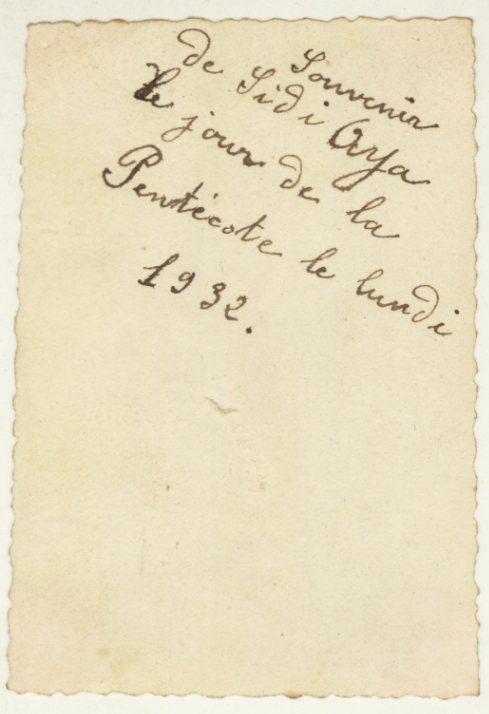 Souvenir
de Sidi Aya
le jour de la
Pentecote le lundi
1932.